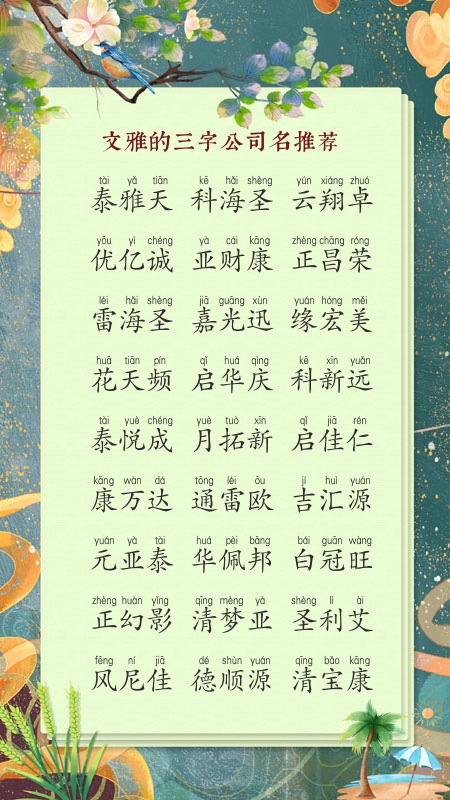 文雅的三字公司名推荐
tài yǎ tiān kē hǎi shèng yún xiáng zhuó
泰雅天 科海圣 云翔卓
yōu yì chéng yà cái kāng zhèng chāng róng
优亿诚 亚财康 正昌荣
léi hǎi shèng jiā guāng xùn yuán hóng měi
雷海圣 嘉光迅 缘宏美
huā tiān pín qǐ huá qìng kē xīn yuǎn
花天频 启华庆 科新远
tài yuè chéng yuè tuò xīn qǐ jiā rén
泰悦成 月拓新 启佳仁
kāng wàn dá tōng léi ōu jí huì yuán
康万达 通雷欧 吉汇源
yuán yà tài huá pèi bāng bái guān wàng
元亚泰 华佩邦 白冠旺
zhèng huàn yǐng qīng mèng yà shèng lì ài
正幻影 清梦亚 圣利艾
fēng ní jiā dé shùn yuán qīng bǎo kāng
风尼佳 德顺源 清宝康